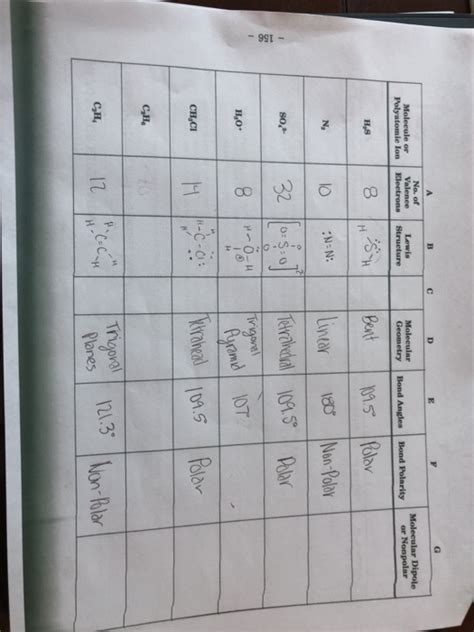 - 156 -
A B C D E F G
Molecule or Polyatomic Ion
No. of Valence Electrons
Lewis Structure
Molecular Geometry
Bond Angles
Bond Polarity
Molecular Dipole or Nonpolar
H₂S 8 H S H Bent 109.5° Polar
N₂ 10 :N=N: Linear 180° Non-Polar
SO₄²⁻ 32 Tetrahedral 109.5° Polar
H₃O⁺ 8 H-O-H Trigonal Pyramid 107°
CH₃Cl 14 Tetrahead 109.5 Polar
C₂H₆
C₂H₄ 12 Trigonal Planes 121.3° Non-Polar